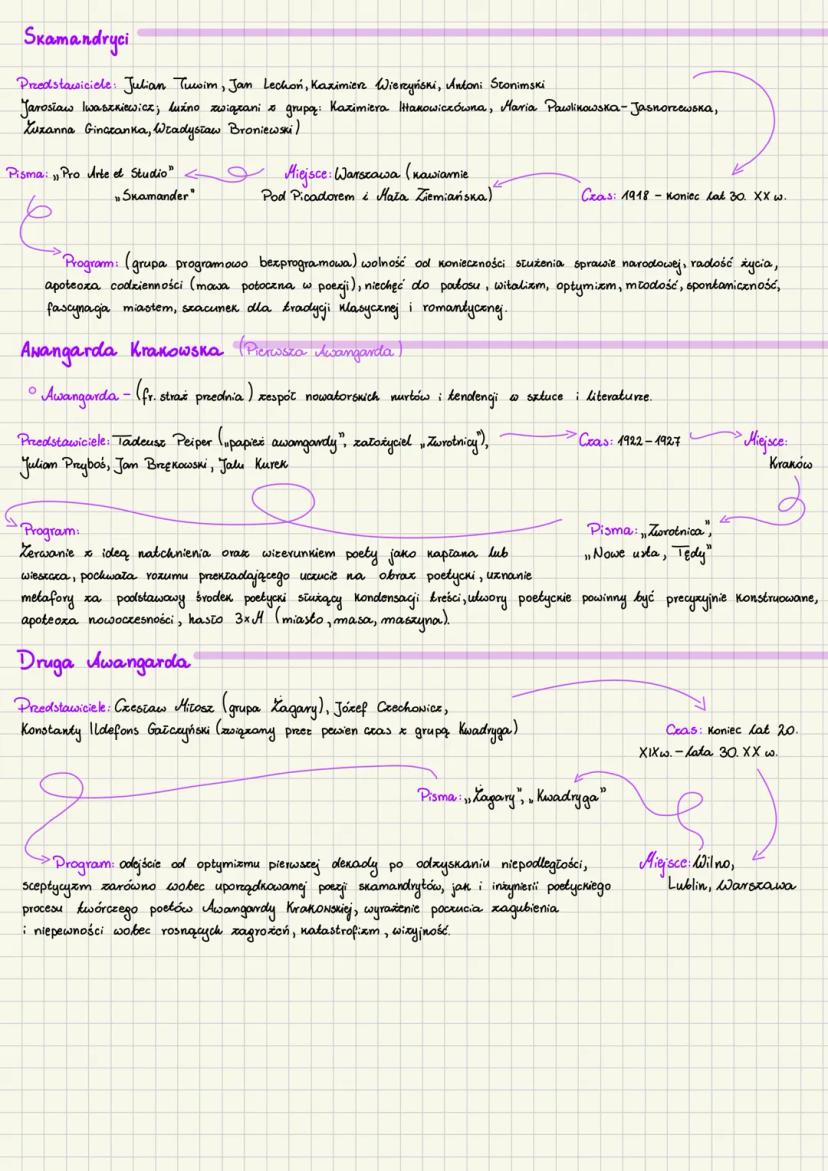 Skamandryci
Przedstawiciele: Julian Tuwim, Jan Lechoń, Kazimierz Wierzyński, Antoni Słonimski
Jarosław Iwaszkiewicz; luźno związani z grupą: Kazimiera Iłłakowiczówna, Maria Pawlikowska-Jasnorzewska,
Zuzanna Ginczanka, Władysław Broniewski)
Pisma: „Pro Arte et Studio"
„Skamander"
Miejsce: Warszawa (kawiarnie
Pod Picadorem i Mała Ziemiańska)
Czas: 1918 - koniec lat 30. XX w.
Program: (grupa programowo bezprogramowa) wolność od konieczności służenia sprawie narodowej, radość życia,
apoteoza codzienności (mowa potoczna w poezji), niechęć do patosu, witalizm, optymizm, młodość, spontaniczność,
fascynacja miastem, szacunek dla tradycji klasycznej i romantycznej.
Awangarda Krakowska (Pierwsza Awangarda)
° Awangarda - (fr. straż przednia) zespół nowatorskich nurtów i tendencji w sztuce i literaturze.
Przedstawiciele: Tadeusz Peiper („papież awangardy", założyciel „Zwrotnicy"),
Julian Przyboś, Jan Brzękowski, Jalu Kurek
Czas: 1922-1927
Miejsce:
Kraków
Pisma: „Zwrotnica",
„Nowe usta, Tędy"
Program:
Zerwanie z ideą natchnienia oraz wizerunkiem poety jako kapłana lub
wieszcza, pochwała rozumu przekładającego uczucie na obraz poetycki, uznanie
metafory za podstawowy środek poetycki służący kondensacji treści, utwory poetyckie powinny być precyzyjnie konstruowane,
apoteoza nowoczesności, hasło 3xM (miasto, masa, maszyna).
Druga Awangarda
Przedstawiciele: Czesław Miłosz (grupa Żagary), Józef Czechowicz,
Konstanty Ildefons Gałczyński (związany przez pewien czas z grupą Kwadryga)
Czas: koniec lat 20.
XIXw. - lata 30. XX w.
Pisma: „Żagary", „Kwadryga"
Miejsce: Wilno,
Lublin, Warszawa
Program: odejście od optymizmu pierwszej dekady po odzyskaniu niepodległości,
sceptycyzm zarówno wobec uporządkowanej poezji skamandrytów, jak i inżynierii poetyckiego
procesu twórczego poetów Awangardy Krakowskiej, wyrażenie poczucia zagubienia
i niepewności wobec rosnących zagrożeń, katastrofizm, wizyjność.